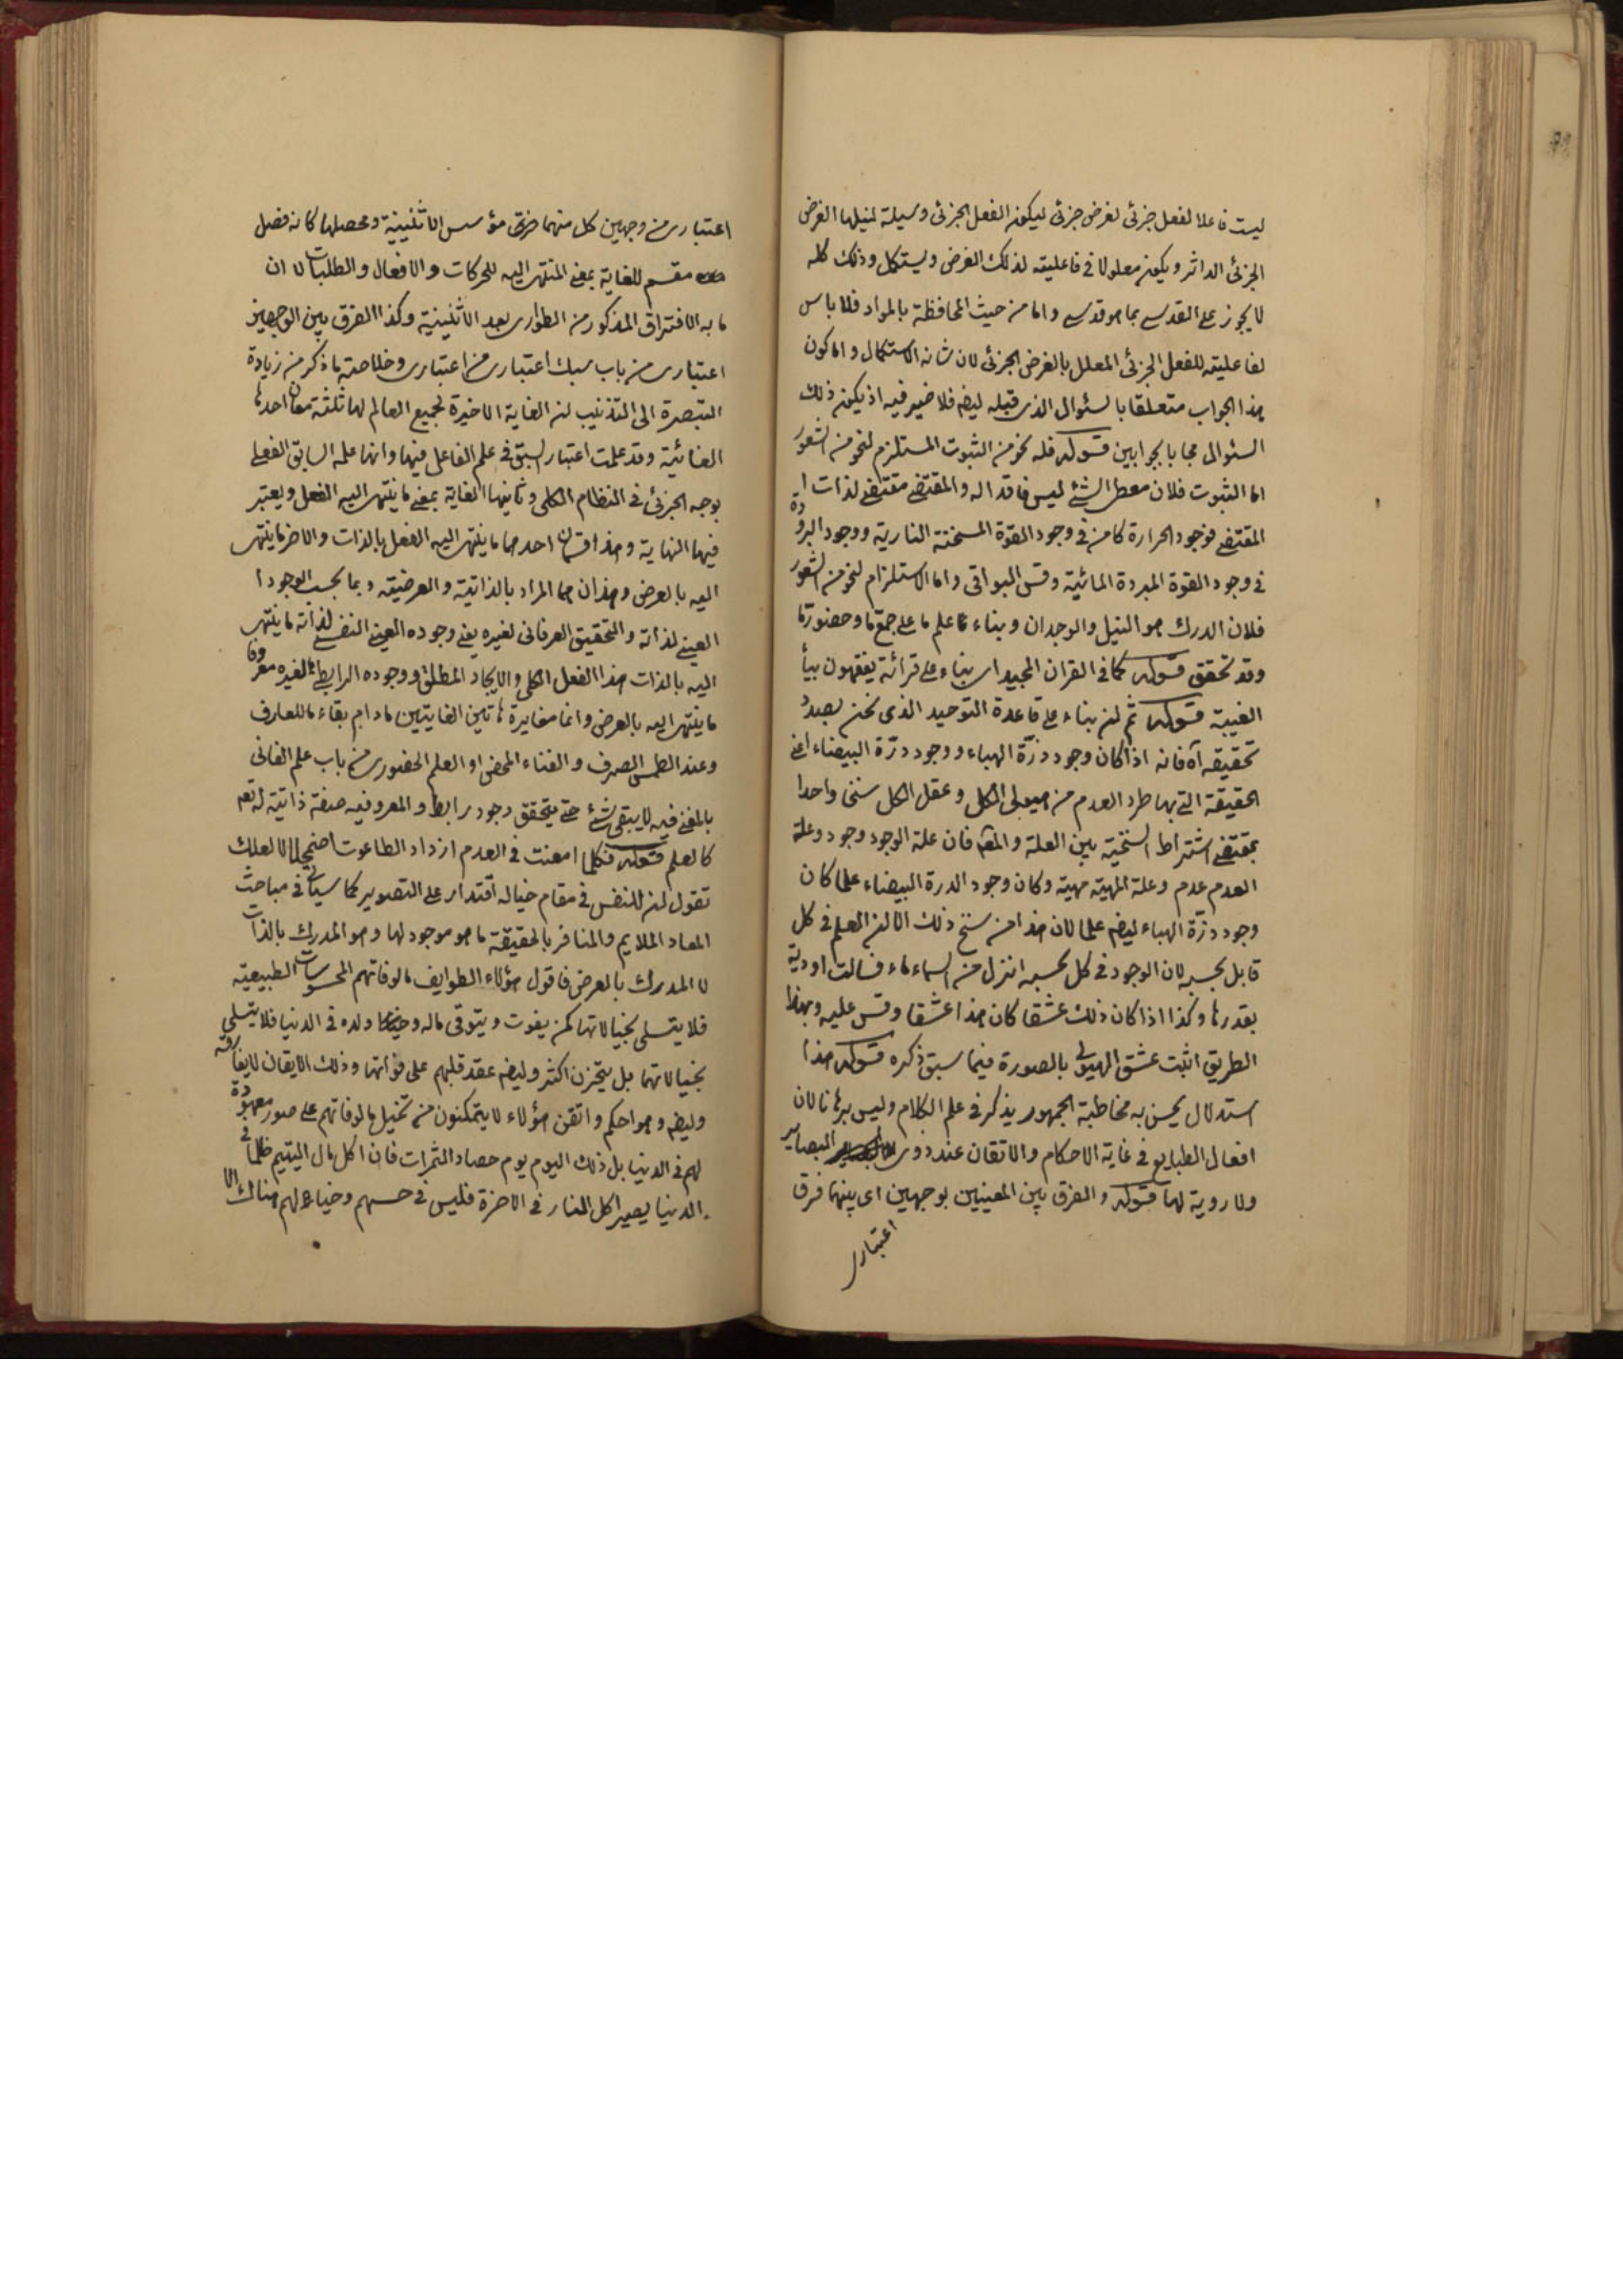 ليست فاعلا لفعل جزئى لغرض جزئى ليكون الفعل الجزئى وسيلة لنيلها الغرض
الجزئى الداثر ويكون معلولا فى فاعليته لذلك الغرض ويستكمل وذلك كله
لا يجوز على القدسى بما هو قدسى واما من حيث المحافظة بالمواد فلا باس
لفاعليته للفعل الجزئى المعلل بالغرض الجزئى لان شانه الاستكمال واما كون
هذا الجواب متعلقا بالسئوال الذى قبله ليضم فلا ضير فيه اذ يكون ذلك
السئوال مجابا بجوابين قوله فله نحو من الثبوت المستلزم لنحو من الشعور
اما الثبوت فلان معطى الشئ ليس فاقدا له والمقتضى مقتضى لذات
المقتضى فوجود الحرارة كامن فى وجود القوة المسخنة النارية ووجود البرودة
فى وجود القوة المبردة المائية وقس البواقى واما الاستلزام لنحو من الشعور
فلان الدرك هو النيل والوجدان وبناء ما علم ما على جمع ما وحضور ما
وقد تحقق قوله كما فى القران المجيد اى بناء على قرائة يفقهون بياء
الغيبة قوله ثم ان بناء على قاعدة التوحيد الذى نحن بصدد
تحقيقه آه فانه اذا كان وجود ذرّة الهباء ووجود درّة البيضاء اعنى
الحقيقة التى بها طرد العدم من هيولى الكل وعقل الكل سنخا واحدا
بمقتضى اشتراط السنخية بين العلة والمعلول فان علة الوجود وجود وعلة
العدم عدم وعلة المهية مهية وكان وجود الدرة البيضاء علما كان
وجود ذرّة الهباء ليضم علما لان هذا من سنخ ذلك الا ان العلم فى كل
قابل بحسبه لان الوجود فى كل بحسبه انزل من السماء ماء فسالت اودية
بقدرها وكذا اذا كان ذلك عشقا كان هذا عشقا وقس عليه وبهذا
الطريق اثبت عشق الهيولى بالصورة فيما سبق ذكره قوله هذا
استدلال يحسن به مخاطبة الجمهور يذكر فى علم الكلام وليس برهانا لان
افعال الطبايع فى غاية الاحكام والاتقان عند ذوى البصاير
ولا روية لها قوله والفرق بين المعنيين بوجهين اى بينهما فرق
اعتبارى
اعتبارى من وجهين كل منهما مؤسس الاثنينية ومحصلها كانه فصل
مقسم للغاية بمعنى المنتهى اليه للحركات والافعال والطلبات لا ان
ما به الافتراق المذكور من الطوارى بعد الاثنينية وكذا الفرق بين الوجهين
اعتبارى من باب سبك اعتبارى من اعتبارى وخلاصة ما ذكر من زيادة
التبصرة الى التذنيب ان الغاية الاخيرة لجميع العالم لها ثلثة معان احدها
الغائية وقد علمت اعتبار السبق فى علم الفاعل فيها وانها علمه السابق الفعلى
بوجه الجزئى فى النظام الكلى وثانيها الغاية بمعنى ما ينتهى اليه الفعل ويعتبر
فيها النهاية وهذا قسمان احدهما ما ينتهى اليه الفعل بالذات والاخر ما ينتهى
اليه بالعرض وهذان هما المراد بالذاتية والعرضية وبما بحسب الوجود ا
العينى لذاته والتحقيق العرفانى لغيره يعنى وجوده العينى النفسى لذاته ما ينتهى
اليه بالذات هذا الفعل الكلى والايجاد المطلق ووجوده الرابطى لغيره معروفا
ما ينتهى اليه بالعرض وانما مغايرة هاتين الغايتين ما دام بقاء ما للعارف
وعند الطمس الصرف والفناء المحض او العلم الحضورى من باب علم الفانى
بالمفنى فيه لا يبقى شئ حتى يتحقق وجود رابط والمعروفيه صفة ذاتية له تعم
كالعلم قوله فكلما امعنت فى العدم ازداد الطاغوت اضمحلالا لعلك
تقول ان للنفس فى مقام خياله اقتدار على التصوير كما سياتى فى مباحث
المعاد الملايم والمنافر بالحقيقة ما هو موجود لها وهو المدرك بالذات
لا المدرك بالعرض فاقول هؤلاء الطوايف مالوفاتهم المحسوسات الطبيعية
فلا يتسلى بخيالاتها كمن يفوت ويتوقى ماله وضياعه وولده فى الدنيا فلا يتسلى
بخيالاتها بل يتحزن اكثر وليضم عقد قلبهم على فواتها وذلك الايقان لا يفارقه
وليضم وهو احكم واتقن هؤلاء لا يتمكنون من تخيل مالوفاتهم على صور معهودة
لهم فى الدنيا بل ذلك اليوم يوم حصاد الثمرات فان اكل مال اليتيم ظلما فى
الدنيا يصير اكل النار فى الاخرة فليس فى حسهم وخيالهم هناك الا